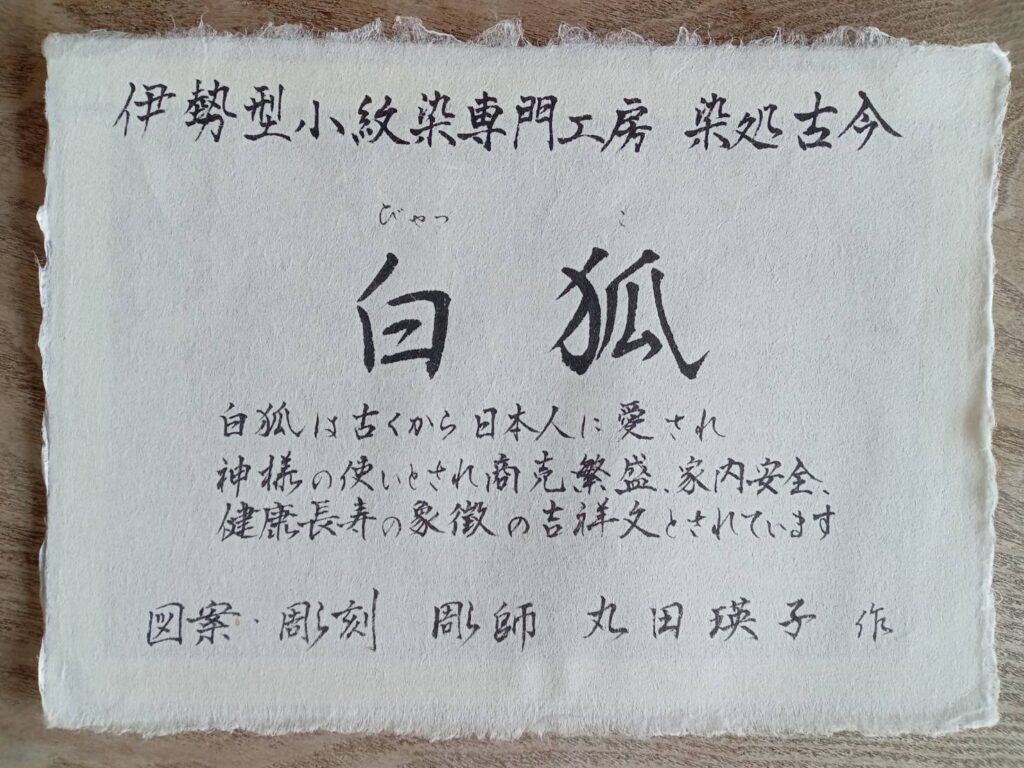 伊勢型小紋染専門工房 染処古今
びゃっ こ
白 狐
白狐は古くから日本人に愛され
神様の使いとされ商売繁盛、家内安全、
健康長寿の象徴の吉祥文とされています
図案・彫刻 彫師 丸田瑛子 作